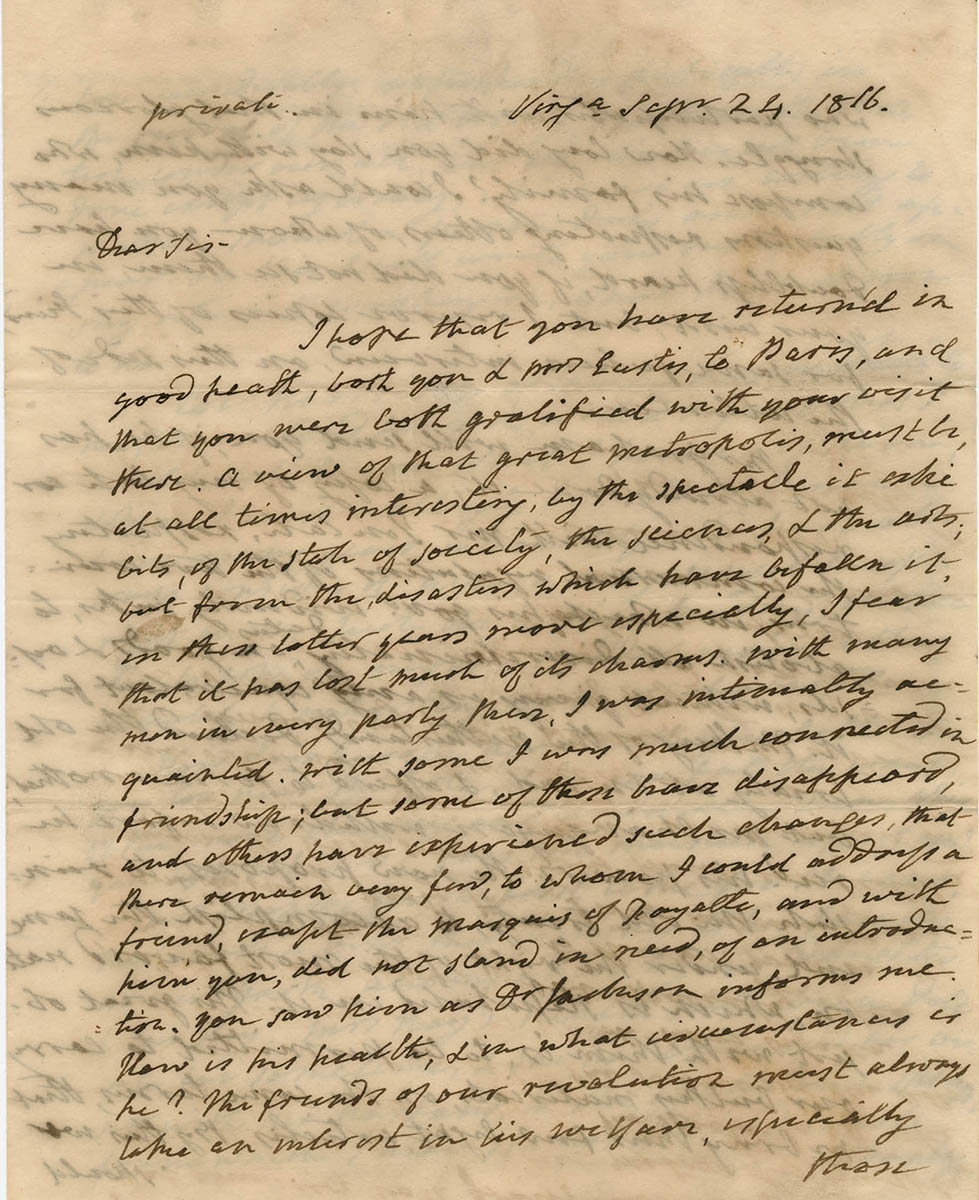 private.
Virgª Sepr. 24. 1816.
Dear Sir
I hope that you have return'd in
good health, both you & Mrs Eustis, to Paris, and
that you were both gratified with your visit
there. A view of that great metropolis, must be,
at all times interesting, by the spectacle it exhi
bits, of the state of society, the sciences, & the arts;
but from the disasters which have befallen it,
in these latter years more especially, I fear
that it has lost much of its charms. With many
men in every party there, I was intimately ac-
quainted. With some I was much connected in
friendship; but some of these have disappeard,
and others have experiencd such changes, that
there remain very few, to whom I could address a
friend, except the Marquis of Fayette, and with
him you, did not stand in need, of an introduc=
tion. You saw him as Dr Jackson informs me.
How is his health, & in what circumstances is
he? The friends of our revolution must always
take an interest in his welfare, especially
those